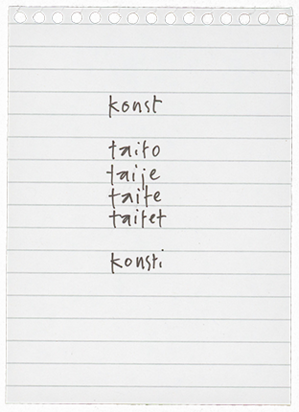 konst
taito
taije
taite
taitet
konsti